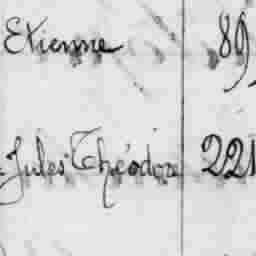 Etienne 89
Jules Théodore 221